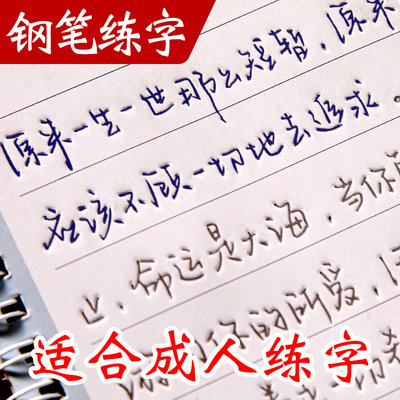 钢笔练字
原来一生一世那么短暂,原来
应该不顾一切地去追求。
命运是大海,当你
向你的所爱,
适合成人练字